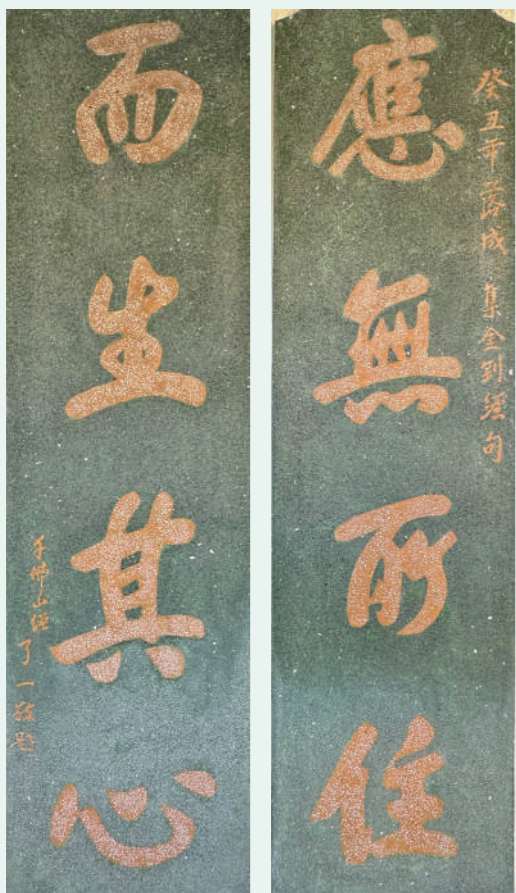 癸丑年落成 集金剛經句
應無所住
而生其心
千佛山僧了一敬題